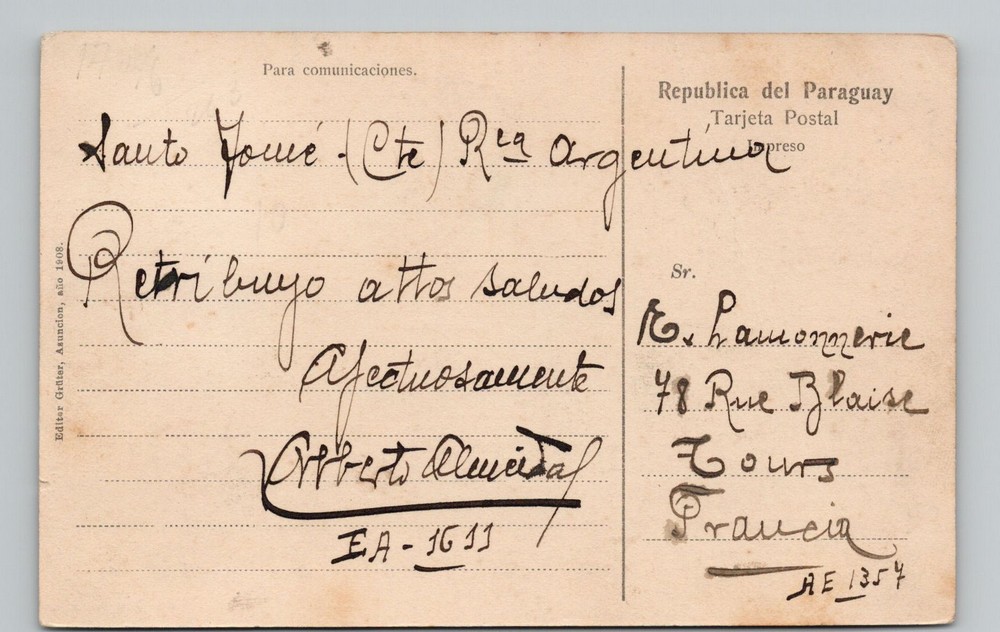 Para comunicaciones.
Santo Tomé - (Cte) Rca Argentina
Retribuyo attos saludos
Afectuosamente
Alberto Almeida
EA - 1611
Editor Grüter, Asuncion, año 1908.
Republica del Paraguay
Tarjeta Postal
Impreso
Sr.
E. Lamonnerie
78 Rue Blaise
Tours
Francia
AE 1357